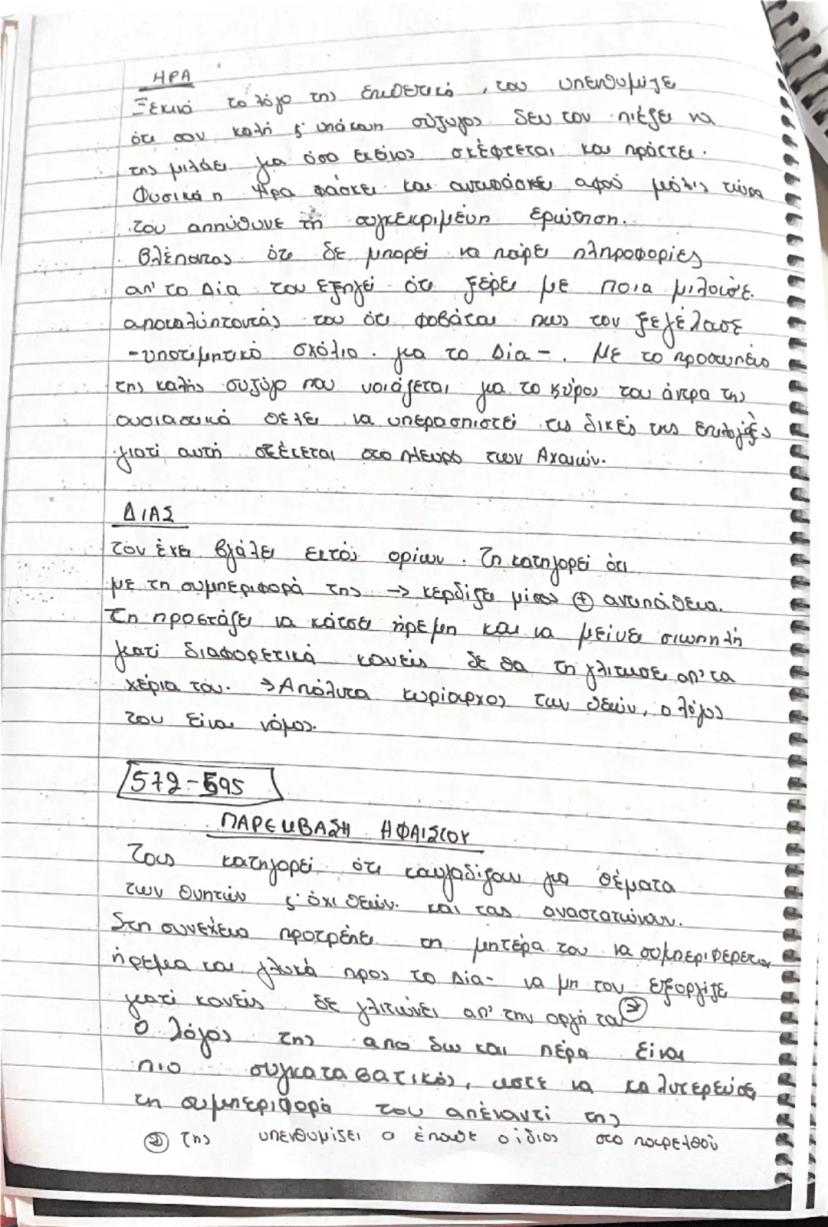 ΗΡΑ
Ξεκινά το λόγο της επιθετικά, του υπενθυμίζε
ότι σαν καλή ϛ' υπάκουη σύζυγος δεν τον πιέζει να
της μιλάει για όσα εκείνος σκέφτεται και πράττει.
Φυσικά η Ήρα φάσκει και αντιφάσκει αφού μόλις τώρα
του απηύθυνε τη συγκεκριμένη ερώτηση.
Βλέποντας ότι δε μπορεί να πάρει πληροφορίες
απ' το Δία του εξηγεί ότι ξέρει με ποια μιλούσε
αποκαλύπτοντάς του ότι φοβάται πως τον ξεγέλασε
-υποτιμητικό σχόλιο για το Δία-. Με το προσωπείο
της καλής συζύγο που νοιάζεται για το κύρος του άντρα της
ουσιαστικά θέλει να υπερασπιστεί τις δικές της επιλογές
γιατί αυτή στέκεται στο πλευρό των Αχαιών.
ΔΙΑΣ
τον έχει βγάλει εκτός ορίων. Τη κατηγορεί ότι
με τη συμπεριφορά της → κερδίζει μίσος ⊕ αντιπάθεια.
Τη προστάζει να κάτσει ήρεμη και να μείνει σιωπηλή
γιατί διαφορετικά κανείς δε θα τη γλιτώσε απ' τα
χέρια του. → Απόλυτα κυρίαρχος των θεών, ο λόγος
του είναι νόμος.
572-595
ΠΑΡΕΜΒΑΣΗ ΗΦΑΙΣΤΟΥ
Τους κατηγορεί ότι καυγαδίζουν για θέματα
των θνητών ϛ' όχι θεών και τας αναστατώναν.
Στη συνέχεια προτρέπει τη μητέρα του να συμπεριφέρεται
ήρεμα και γλυκά προς το Δία- να μη τον εξοργίζε
γιατί κανείς δε γλιτώνει απ' την οργή του ②
Ο λόγος της απο δω και πέρα είναι
πιο συγκαταβατικός, ώστε να καλυτερεύσει
τη συμπεριφορά του απέναντί της
② της υπενθυμίζει ο έπαθε ο ίδιος στο παρελθόν